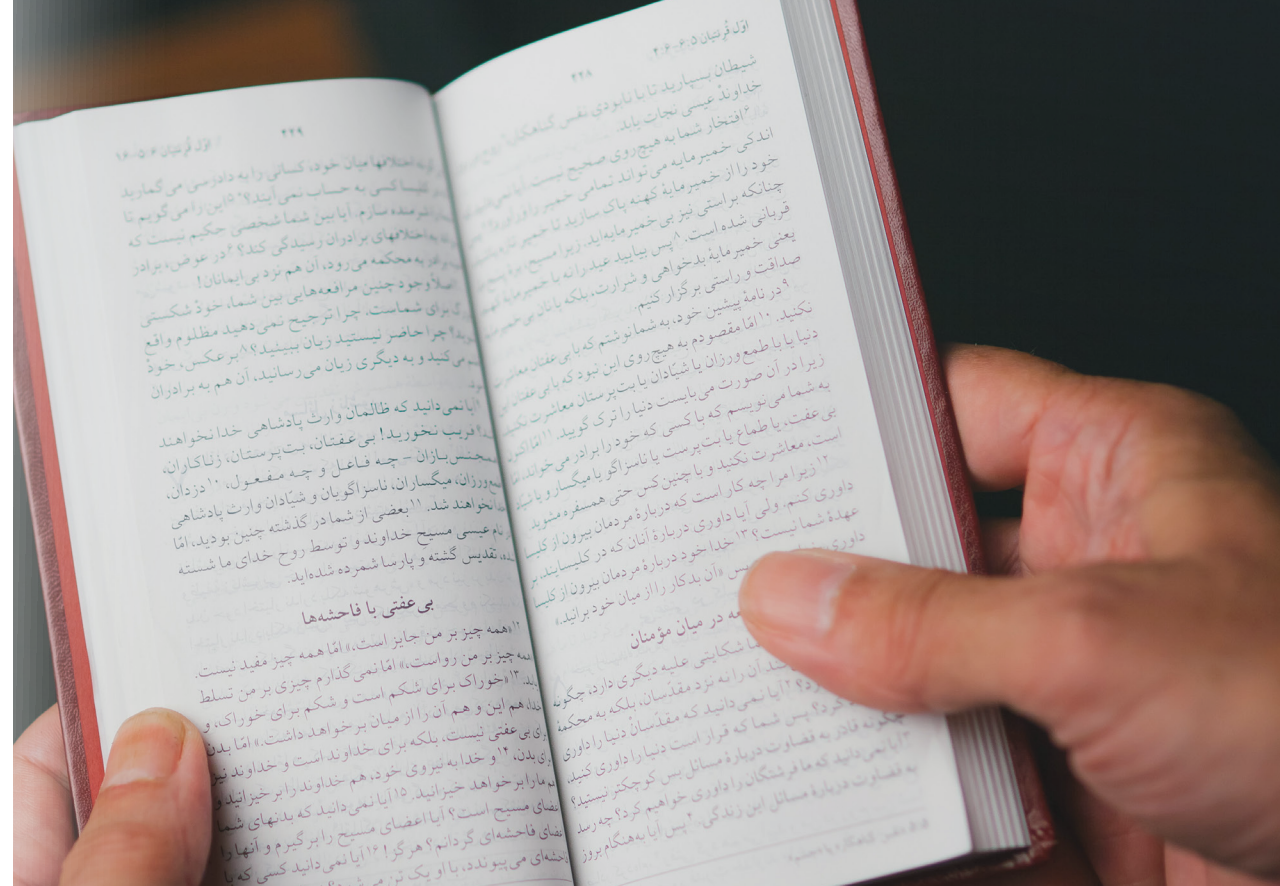 اوّل قُرنتیان ۵:‏۶ - ۶:‏۴
۴۲۸
شیطان بسپارید تا با نابودی نفس گناهکار،
خداوندْ عیسی نجات یابد.
۶افتخار شما به هیچ‌روی صحیح نیست. آیا نمی‌دانید که
اندکی خمیرمایه می‌تواند تمامی خمیر را ورآورد؟
خود را از خمیرمایهٔ کهنه پاک سازید تا خمیر تازه باشید،
چنانکه براستی نیز بی‌خمیرمایه‌اید. زیرا مسیح، برهٔ پسح
قربانی شده است. ۸پس بیایید عید را نه با خمیرمایهٔ کهنه
یعنی خمیرمایهٔ بدخواهی و شرارت، بلکه با نان بی‌خمیرمایهٔ
صداقت و راستی برگزار کنیم.
۹در نامهٔ پیشین خود، به شما نوشتم که با بی‌عفتان معاشرت
نکنید. ۱۰امّا مقصودم به هیچ‌روی این نبود که با بی‌عفتان این
دنیا یا با طمع‌ورزان یا شیّادان یا بت‌پرستان معاشرت نکنید،
زیرا در آن صورت می‌بایست دنیا را ترک گویید. ۱۱امّا اکنون
به شما می‌نویسم که با کسی که خود را برادر می‌خواند، امّا
بی‌عفت، یا طماع یا بت‌پرست یا ناسزاگو یا میگسار و یا شیّاد
است، معاشرت نکنید و با چنین کس حتی همسفره مشوید.
۱۲زیرا مرا چه کار است که دربارهٔ مردمان بیرون از کلیسا
داوری کنم. ولی آیا داوری دربارهٔ آنان که در کلیسایند، بر
عهدهٔ شما نیست؟ ۱۳خدا خود دربارهٔ مردمان بیرون از کلیسا
داوری پس «آن بدکار را از میان خود برانید.»
در میان مؤمنان
شکایتی علیه دیگری دارد، چگونه
آن را نه نزد مقدّسان، بلکه به محکمه
۲آیا نمی‌دانید که مقدّسان دنیا را داوری
کرد؟ پس شما که قرار است دنیا را داوری کنید،
چگونه قادر به قضاوت دربارهٔ مسائل بس کوچکتر نیستید؟
۳آیا نمی‌دانید که ما فرشتگان را داوری خواهیم کرد؟ چه رسد
به قضاوت دربارهٔ مسائل این زندگی. ۴پس آیا به‌هنگام بروز
۴۲۹
اوّل قُرنتیان
اختلافها میان خود، کسانی را به دادرسی می‌گمارید
کلیسا کسی به حساب نمی‌آیند؟ ۵این را می‌گویم تا
شرمنده سازم. آیا بین شما شخصی حکیم نیست که
به اختلافهای برادران رسیدگی کند؟ ۶در عوض، برادر
به محکمه می‌رود، آن هم نزد بی‌ایمانان!
اصلاً وجود چنین مرافعه‌هایی بین شما، خودْ شکستی
برای شماست. چرا ترجیح نمی‌دهید مظلوم واقع
چرا حاضر نیستید زیان ببینید؟ ۸برعکس، خودْ
می‌کنید و به دیگری زیان می‌رسانید، آن هم به برادران
آیا نمی‌دانید که ظالمان وارث پادشاهی خدا نخواهند
فریب نخورید! بی‌عفتان، بت‌پرستان، زناکاران،
همجنس‌بازان - چه فاعل و چه مفعول، ۱۰دزدان،
طمع‌ورزان، میگساران، ناسزاگویان و شیّادان وارث پادشاهی
خدا نخواهند شد. ۱۱بعضی از شما در گذشته چنین بودید، امّا
نام عیسی مسیح خداوند و توسط روح خدای ما شسته
شده، تقدیس گشته و پارسا شمرده شده‌اید.
بی‌عفتی با فاحشه‌ها
۱۲«همه چیز بر من جایز است،» امّا همه چیز مفید نیست.
«همه چیز بر من رواست،» امّا نمی‌گذارم چیزی بر من تسلط
۱۳«خوراک برای شکم است و شکم برای خوراک، و
خدا، هم این و هم آن را از میان برخواهد داشت.» امّا بدن
برای بی‌عفتی نیست، بلکه برای خداوند است و خداوند نیز
برای بدن، ۱۴و خدا به نیروی خود، هم خداوند را برخیزانید و
هم ما را برخواهد خیزانید. ۱۵آیا نمی‌دانید که بدنهای شما
اعضای مسیح است؟ آیا اعضای مسیح را برگیرم و آنها را
اعضای فاحشه‌ای گردانم؟ هرگز! ۱۶آیا نمی‌دانید کسی که با
فاحشه‌ای می‌پیوندد، با او یک تن